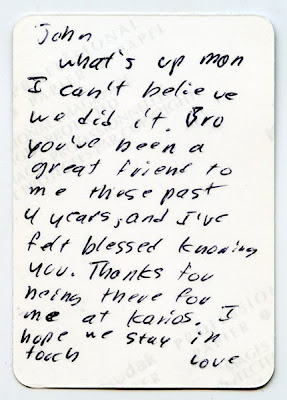 John
what's up man
I can't believe
we did it. Bro
you've been a
great friend to
me these past
4 years, and I've
felt blessed knowing
you. Thanks for
being there for
me at Karios. I
hope we stay in
touch Love